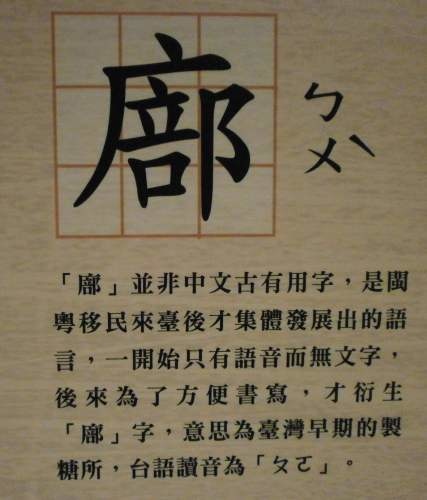 廍 ㄅㄨˋ
「廍」並非中文古有用字，是閩
粵移民來臺後才集體發展出的語
言，一開始只有語音而無文字，
後來為了方便書寫，才衍生
「廍」字，意思為臺灣早期的製
糖所，台語讀音為「ㄆㄛ」。